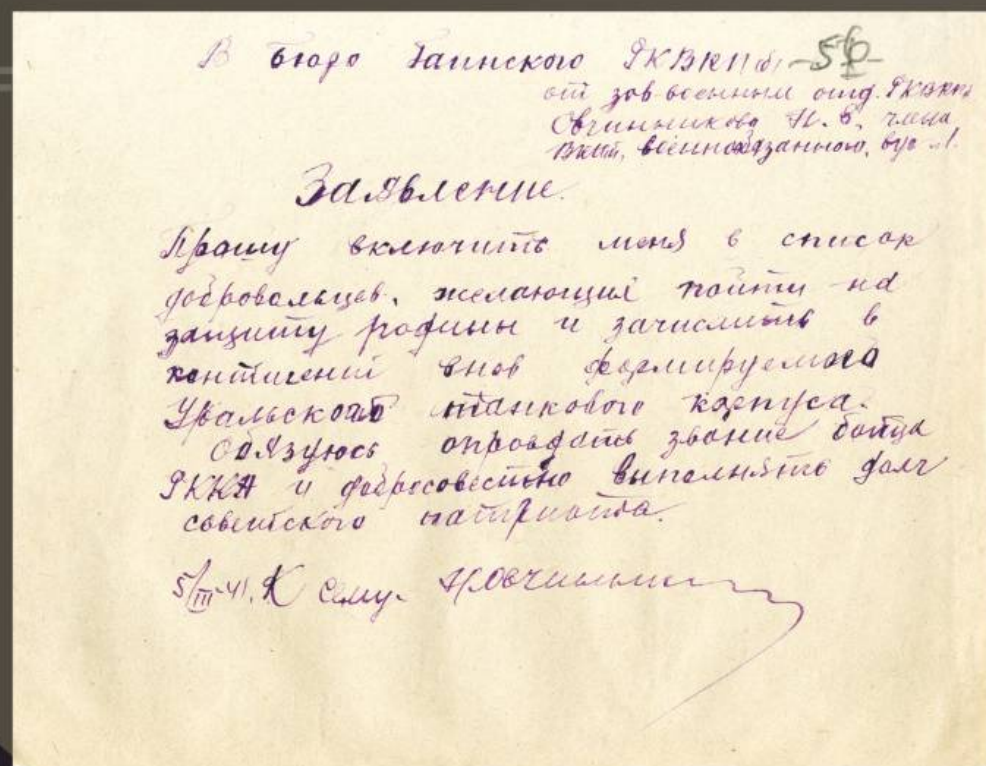 В бюро Гаинского РКВКП(б) -58-
от зав военным отд. РКВКП
Овчинникова Н. Е, члена
ВКП, военнообязанного, вус №1.
Заявление.
Прошу включить меня в список
добровольцев, желающий пойти на
защиту родины и зачислить в
контингент внов формируемого
Уральского танкового корпуса.
Обязуюсь оправдать звание бойца
РККА и добросовестно выполнять долг
советского патриота.
5/III-41. К сему. Н.Овчинни